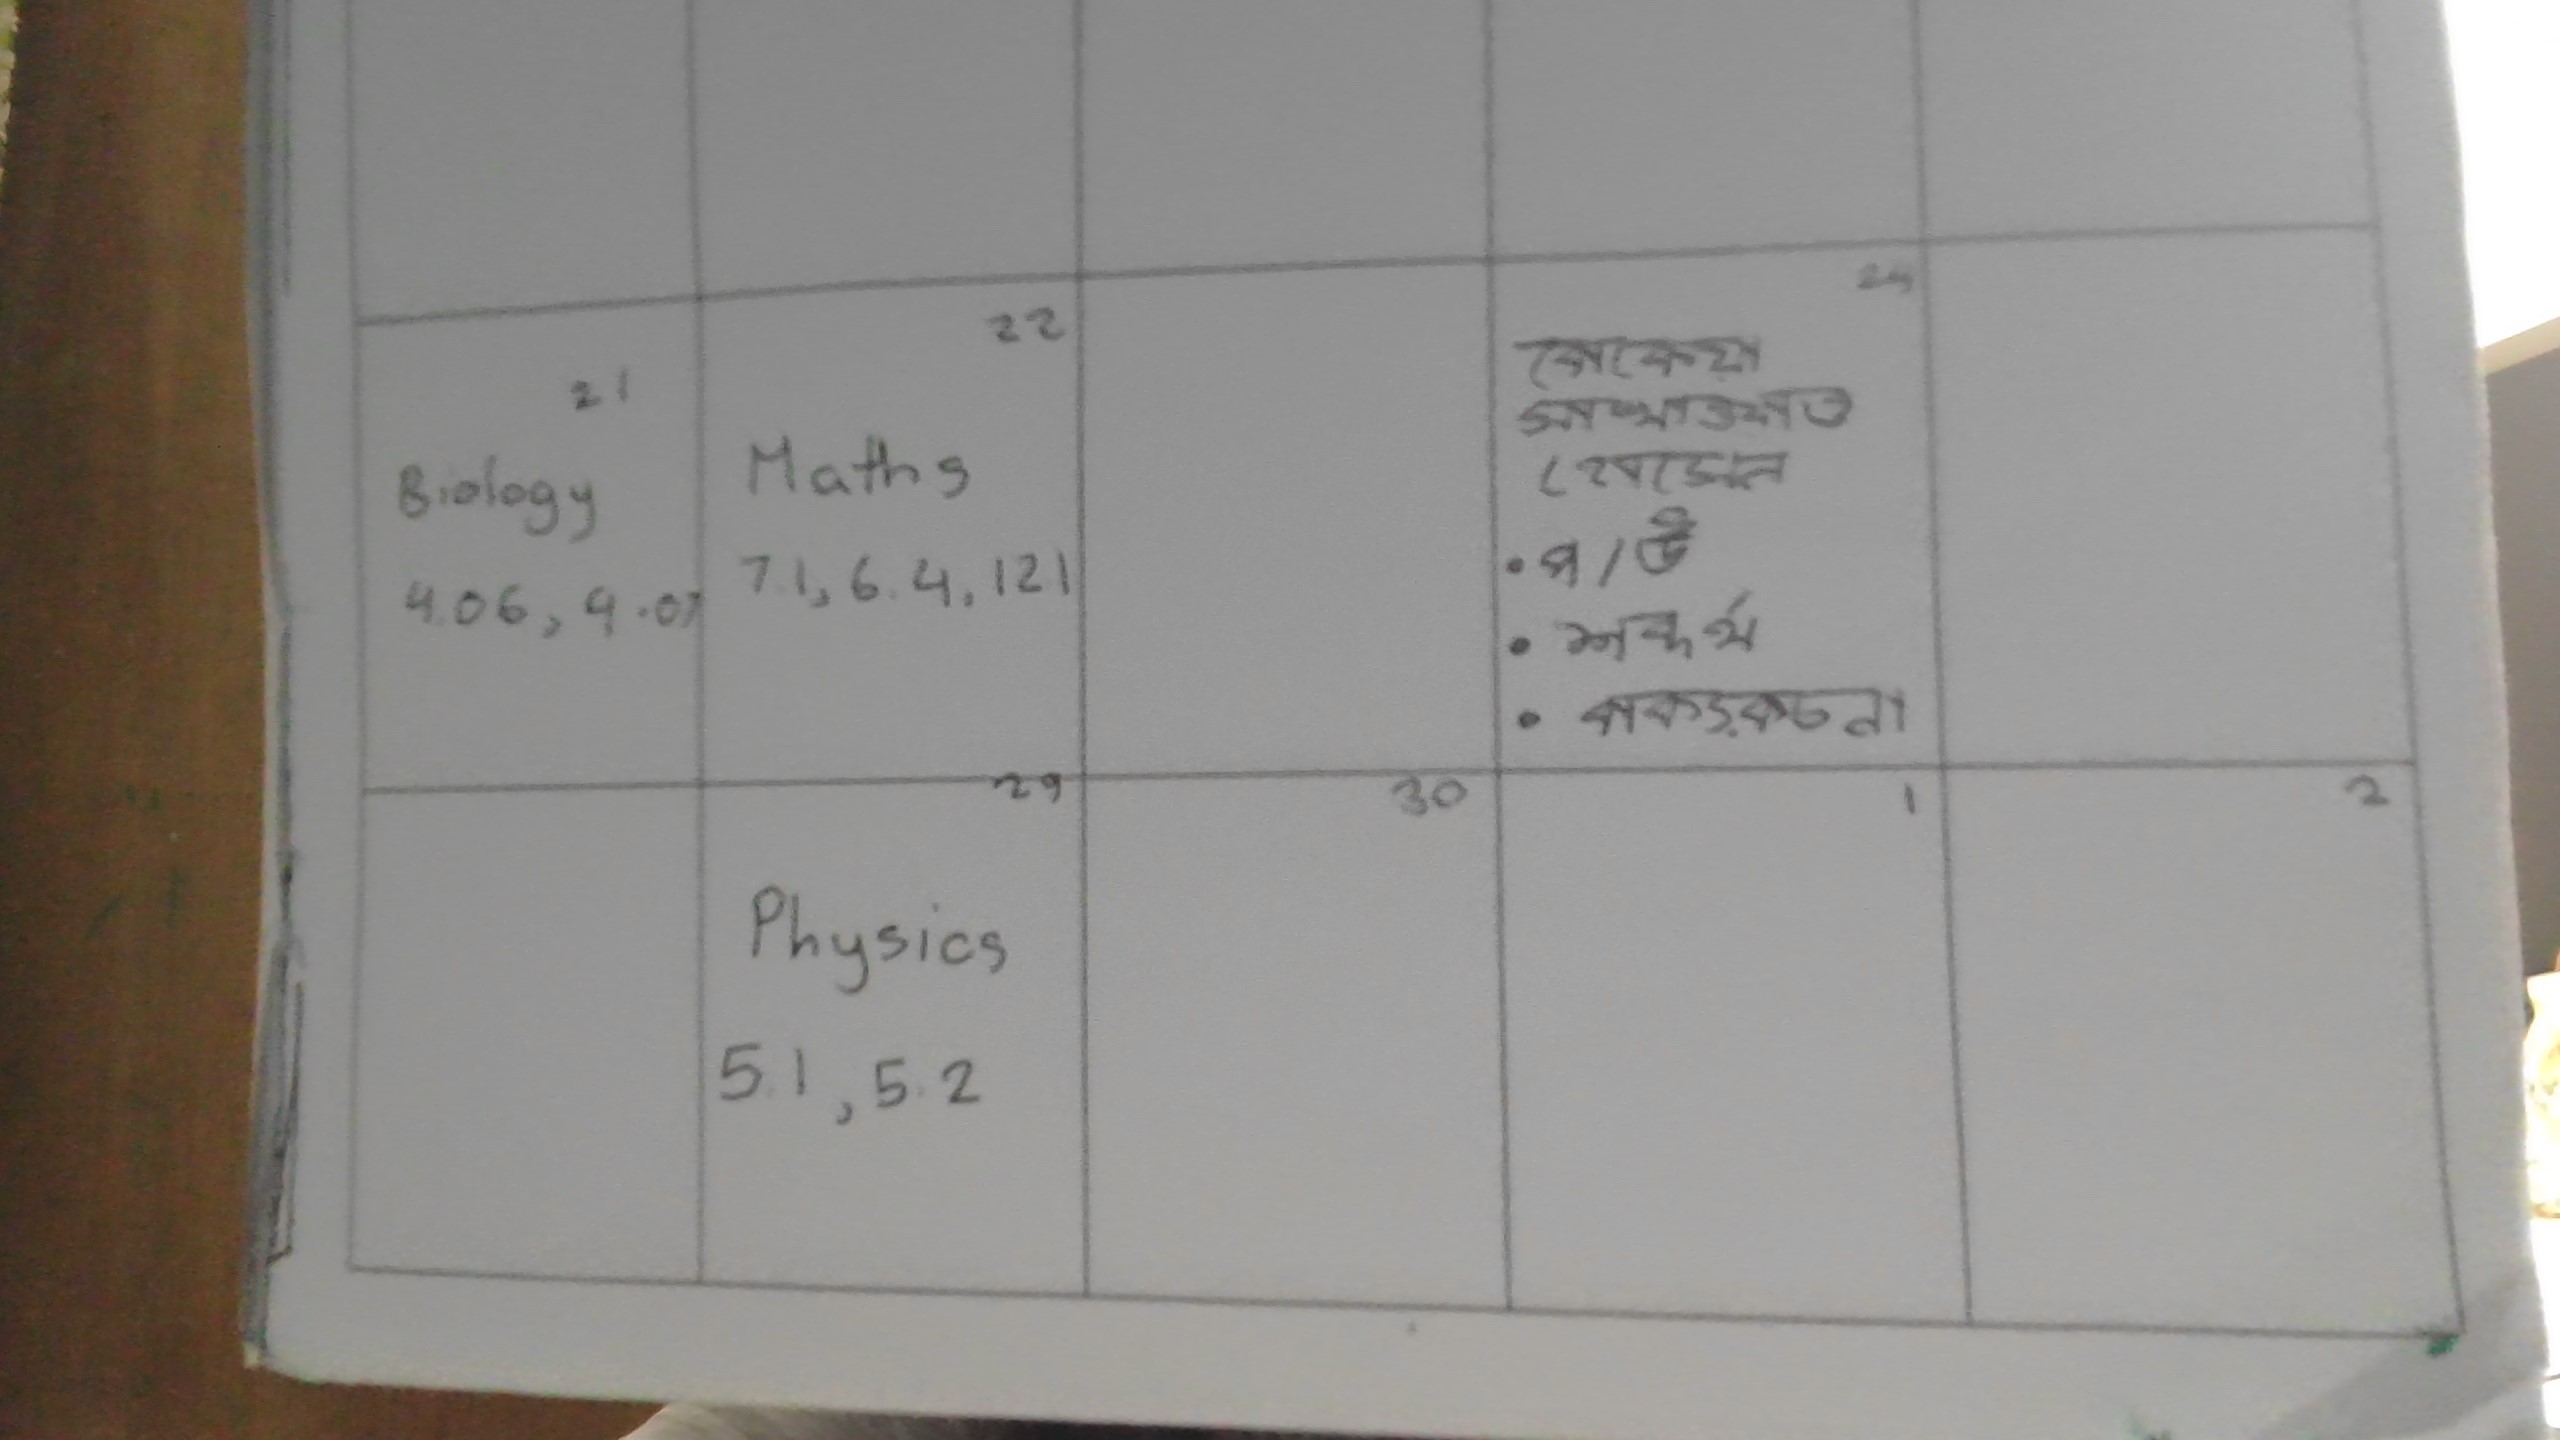 21
Biology
4.06, 4.07
22
Maths
7.1, 6.4, 121
24
রোকেয়া
সাখাওয়াত
হোসেন
• প্র/উ
• শব্দার্থ
29
Physics
5.1, 5.2
30
1
2